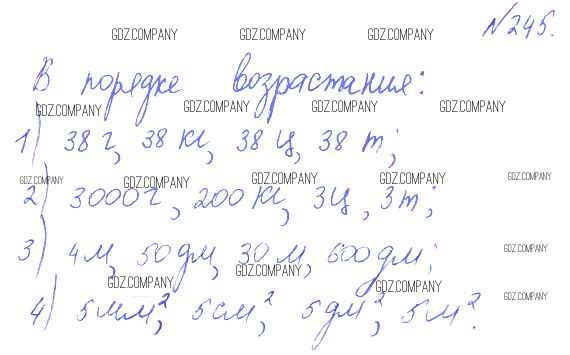 №245.
GDZ.COMPANY GDZ.COMPANY GDZ.COMPANY
В порядке возрастания:
GDZ.COMPANY GDZ.COMPANY GDZ.COMPANY GDZ.COMPANY
1) 38 г, 38 кг, 38 ц, 38 т;
GDZ.COMPANY GDZ.COMPANY GDZ.COMPANY GDZ.COMPANY GDZ.COMPANY
2) 3000 г, 200 кг, 3ц, 3т;
3) 4м, 50 дм, 30 м, 600 дм;
GDZ.COMPANY
GDZ.COMPANY
GDZ.COMPANY GDZ.COMPANY
4) 5 мм², 5 см², 5 дм², 5 м².
GDZ.COMPANY